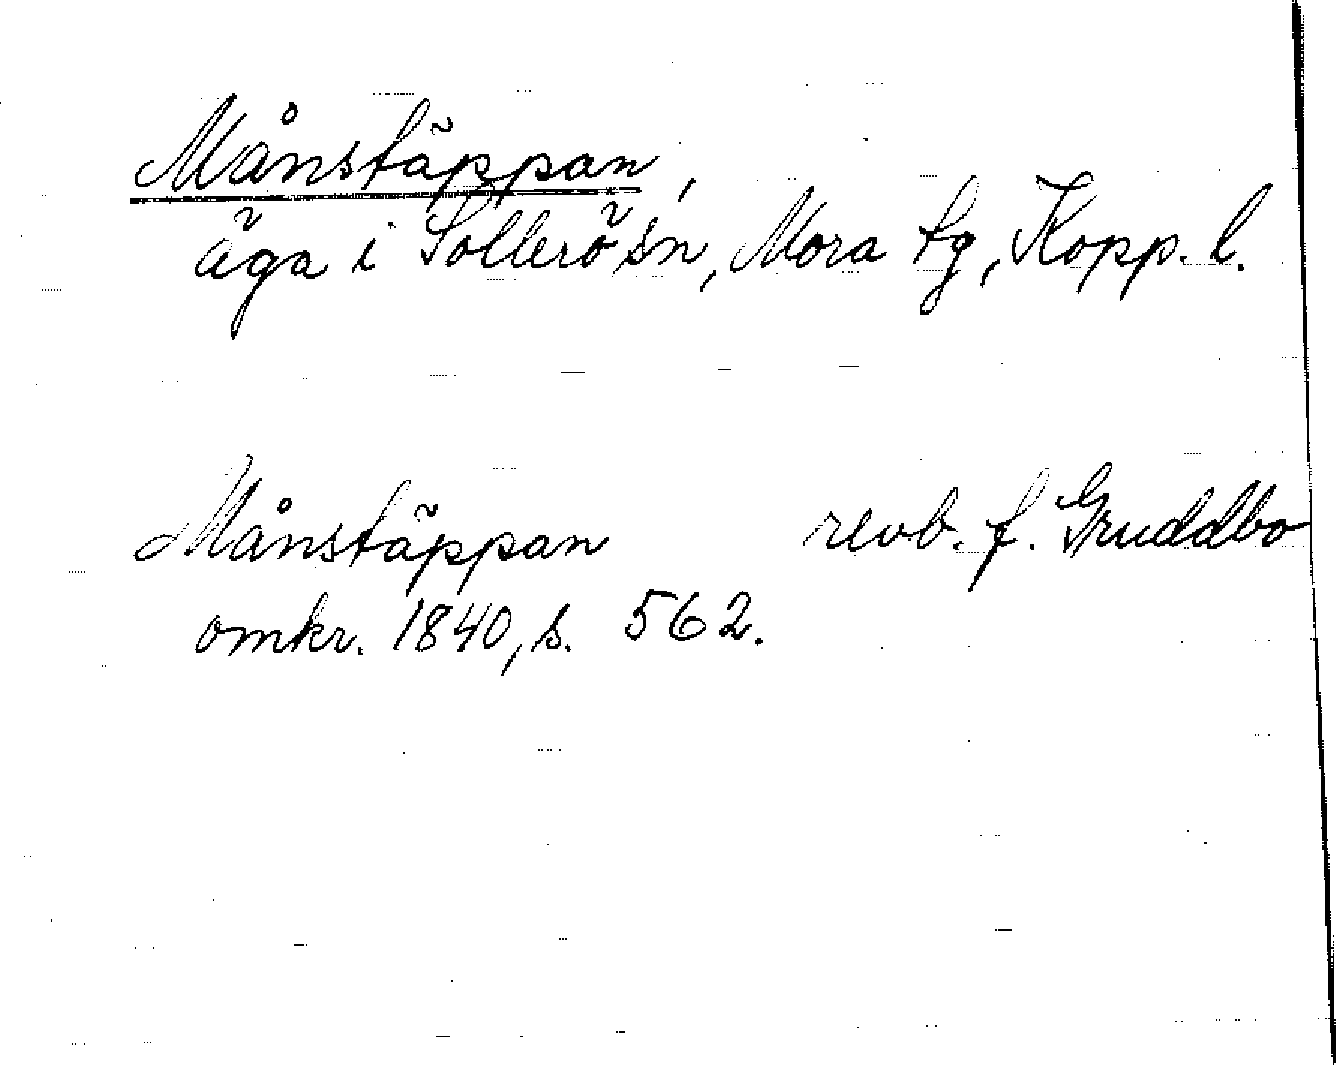 Månstäppan,
äga i Sollerö sn, Mora tg, Kopp. l.
Månstäppan revb. f. Gruddbo
omkr. 1840, s. 562.